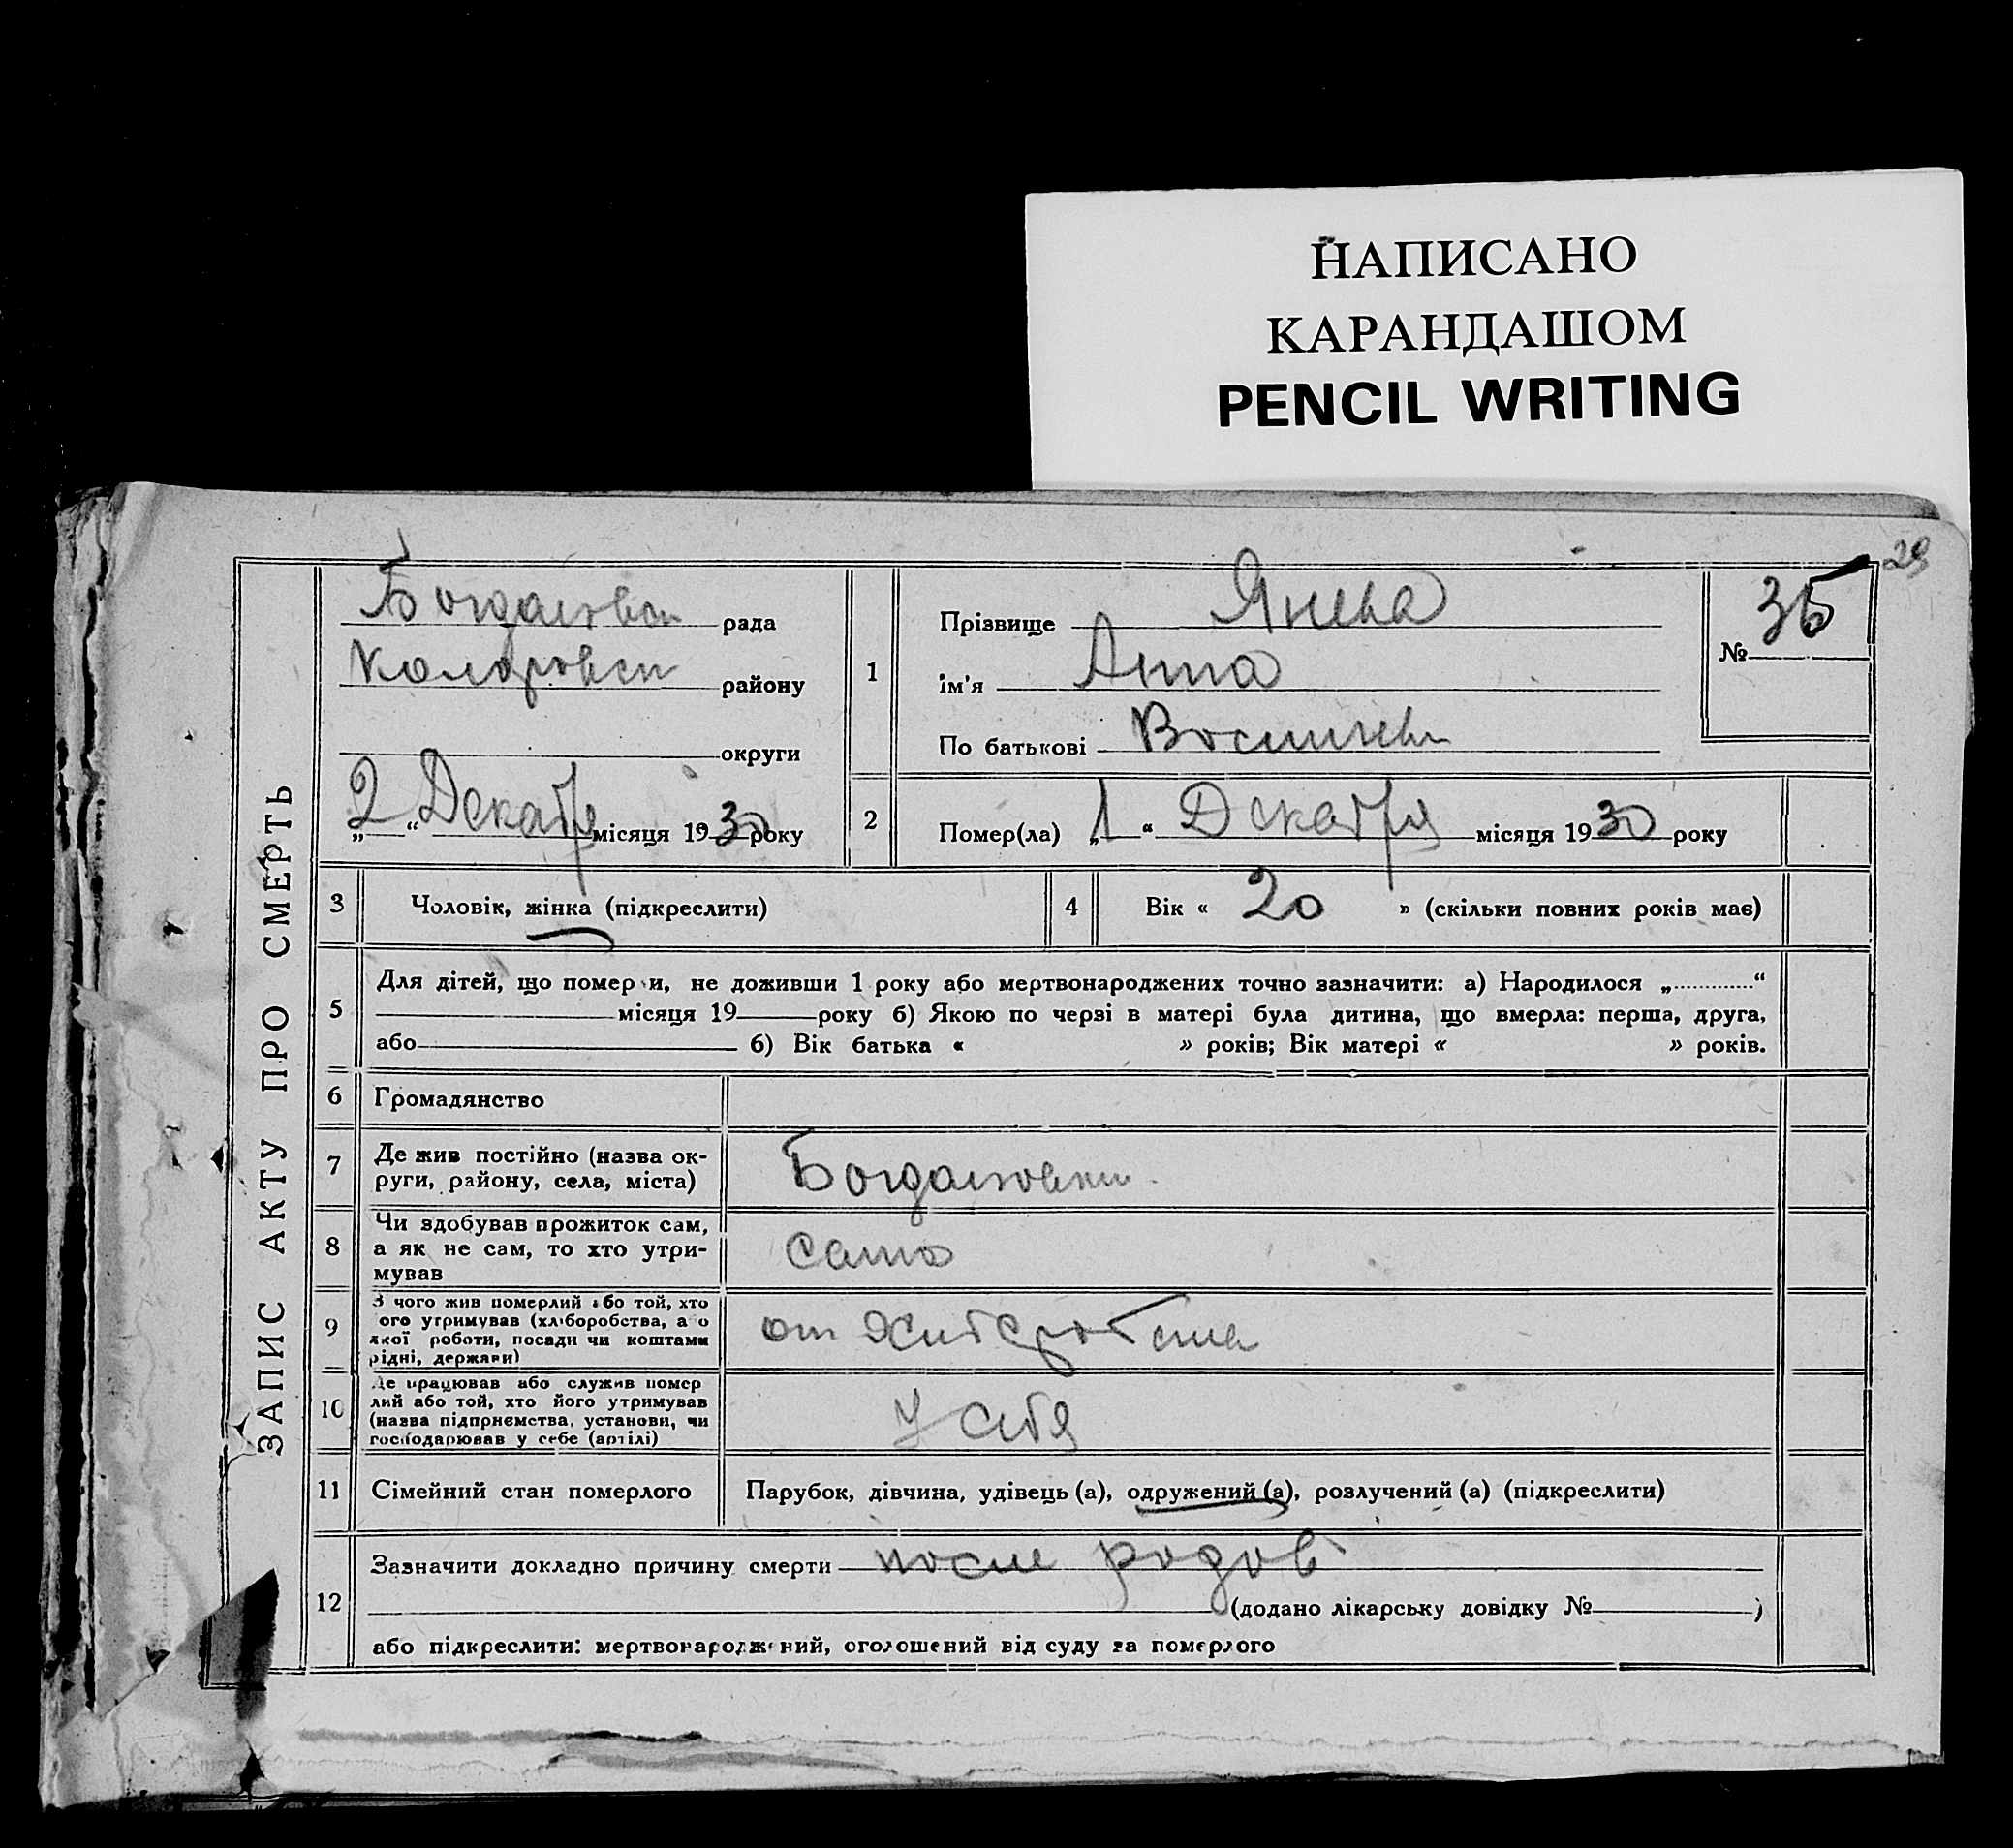 НАПИСАНО
КАРАНДАШОМ
PENCIL WRITING
29
ЗАПИС АКТУ ПРО СМЕРТЬ
Богдановск рада
Коларовск району
округи
„2“ Декабря місяця 1930 року
1
Прізвище Янева
Ім'я Анна
По батькові
№ 35
2
Помер(ла) „1“ Декабря місяця 1930 року
3 Чоловік, жінка (підкреслити)
4 Вік « 20 » (скільки повних років має)
5
Для дітей, що померли, не доживши 1 року або мертвонароджених точно зазначити: а) Народилося „............“
місяця 19 року б) Якою по черзі в матері була дитина, що вмерла: перша, друга,
або б) Вік батька « » років; Вік матері « » років.
6 Громадянство
7
Де жив постійно (назва ок-
руги, району, села, міста)
Богдановка
8
Чи здобував прожиток сам,
а як не сам, то хто утри-
мував
сама
9
З чого жив померлий або той, хто
його утримував (хліборобства, а о
якої роботи, посади чи коштами
рідні, держави)
от
10
Де працював або служив помер
лий або той, хто його утримував
(назва підприємства, установи, чи
господарював у себе (артілі)
У себя
11 Сімейний стан померлого
Парубок, дівчина, удівець (а), одружений (а), розлучений (а) (підкреслити)
12
Зазначити докладно причину смерти после родов
(додано лікарську довідку № )
або підкреслити: мертвонароджений, оголошений від суду за померлого